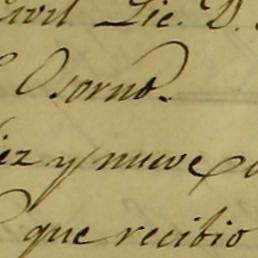 Civil Lic. D.
Osorno.
iez y nueve
que recibio